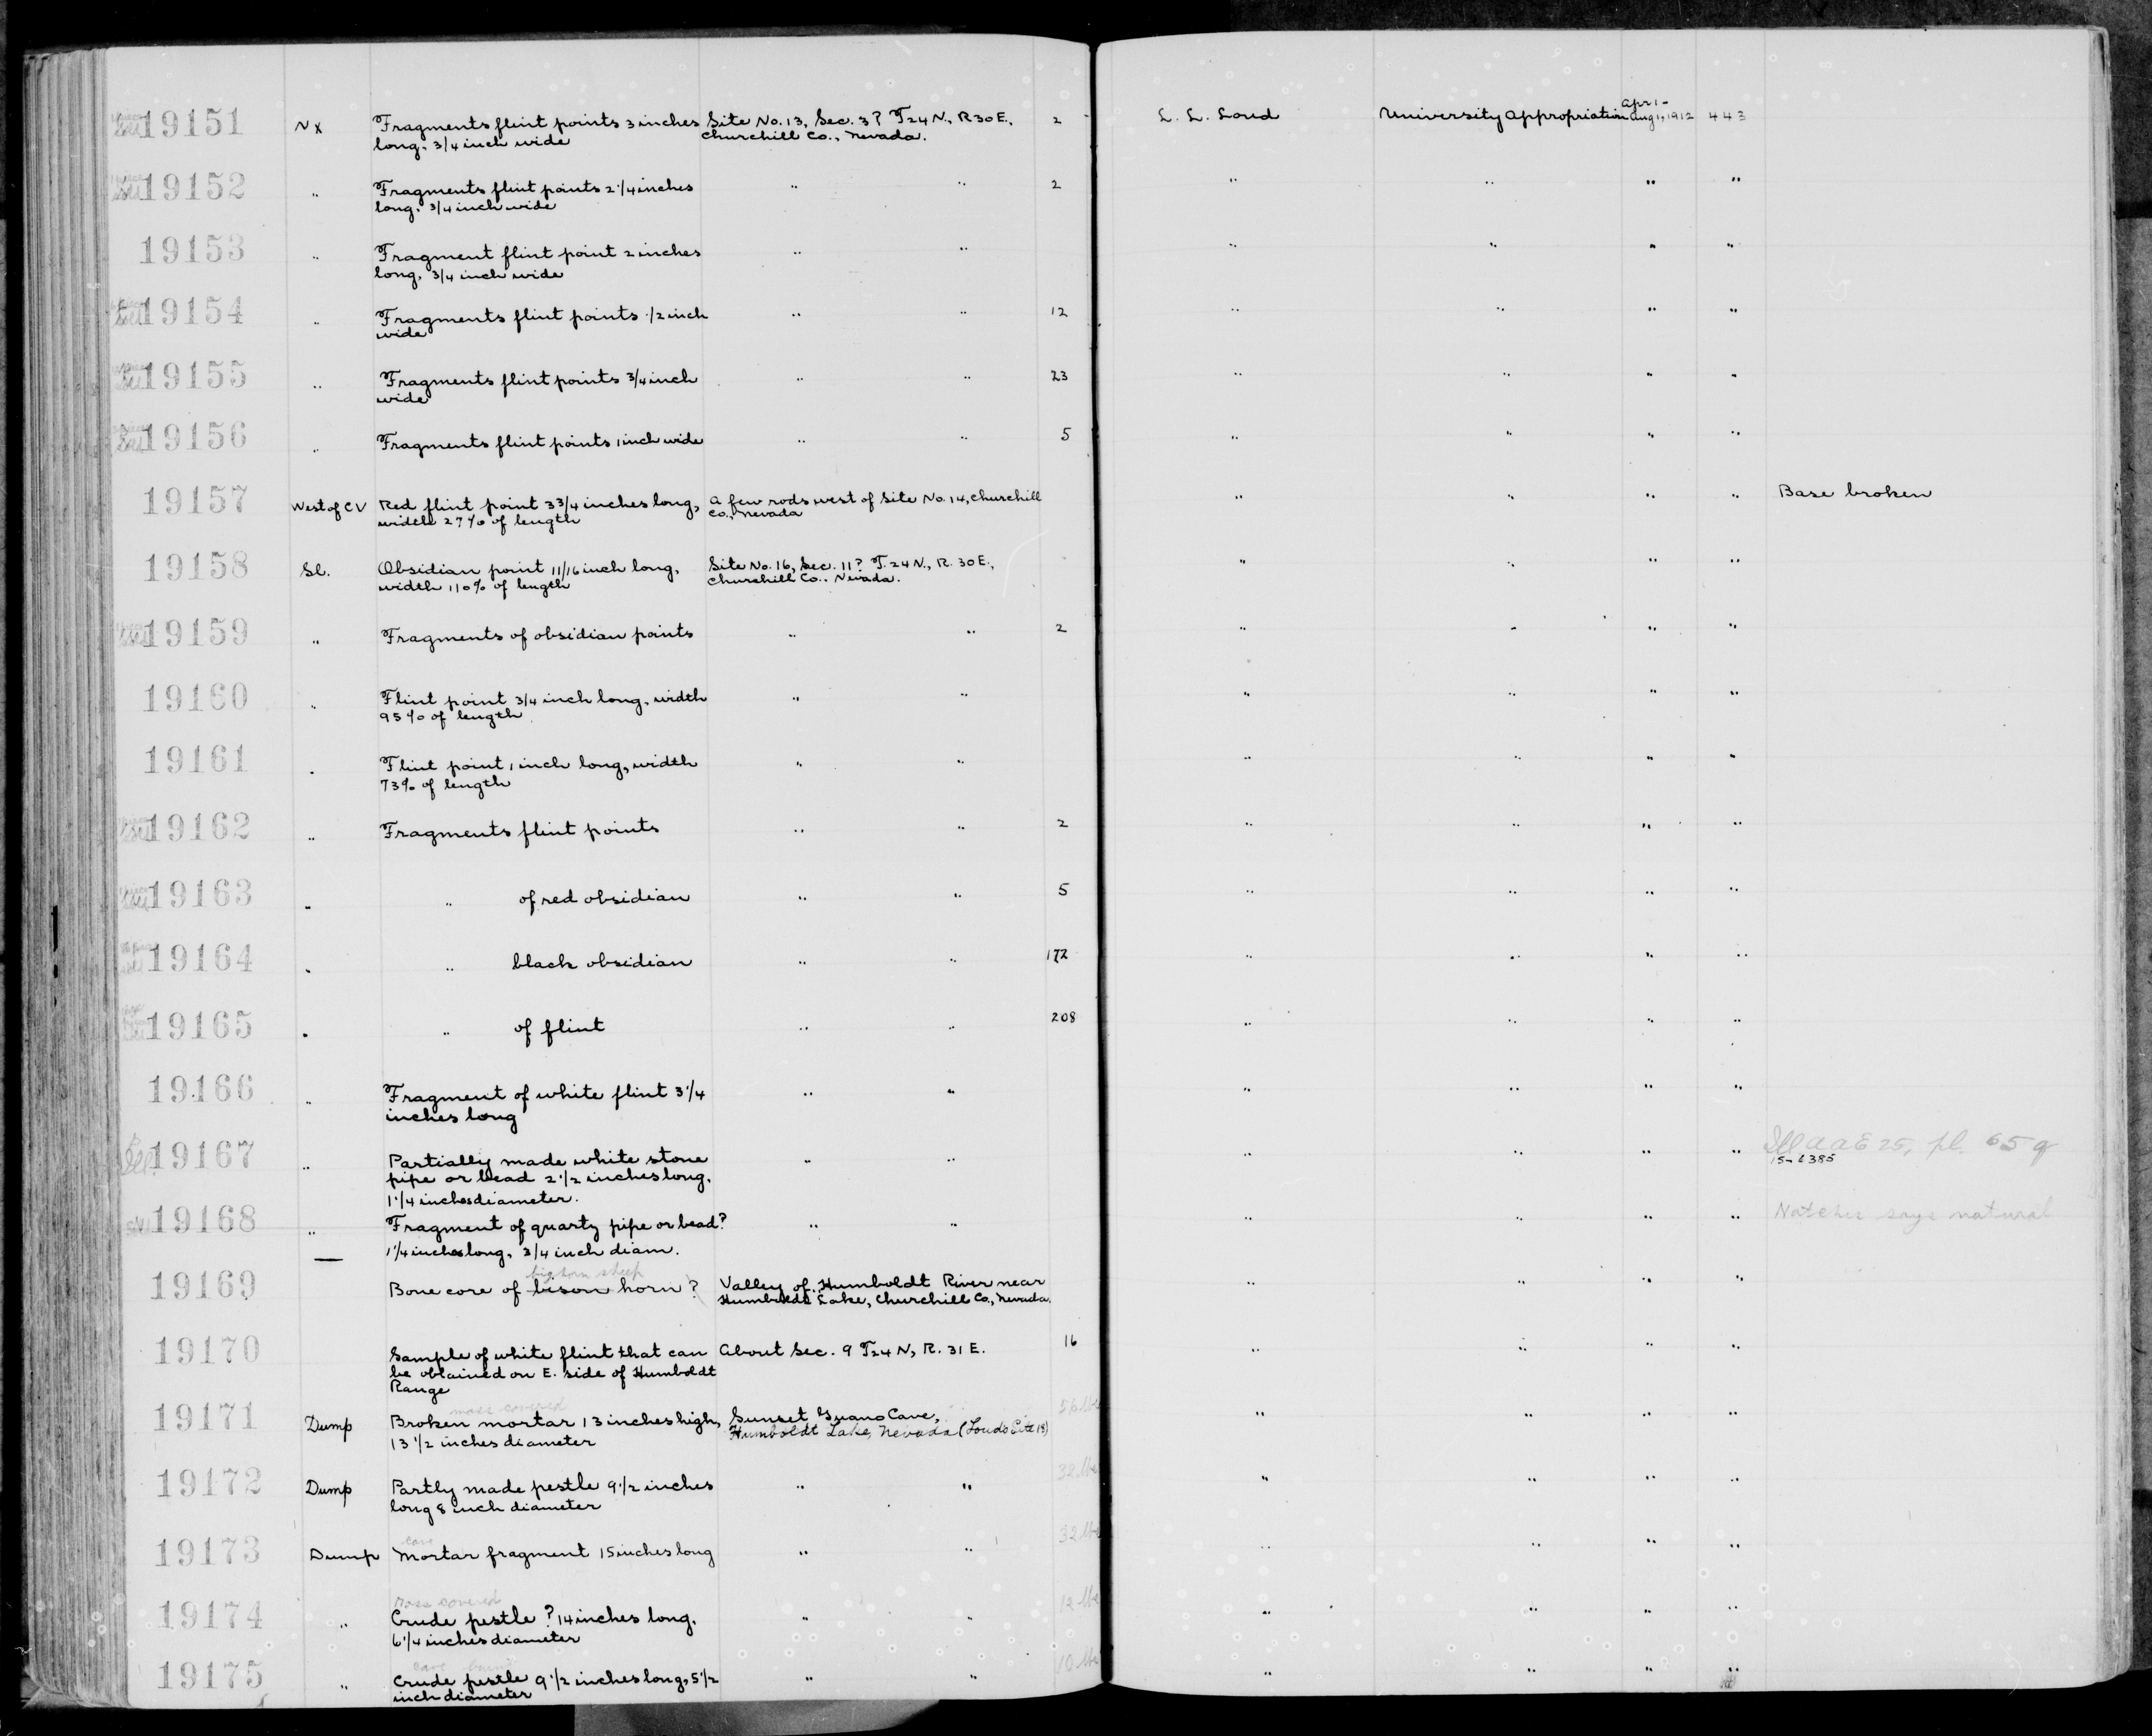 19151 NX Fragments flint points 3 inches Site No. 13, Sec. 3? T24 N., R30E., 2 L. L. Loud University Appropriation Apr 1- Aug 1, 1912 443
long, 3/4 inch wide Churchill Co., Nevada.
19152 " Fragments flint points 2 1/4 inches " " 2 " " " "
long, 3/4 inch wide
19153 " Fragment flint point 2 inches " " " " " "
long, 3/4 inch wide
19154 " Fragments flint points 1/2 inch " " 12 " " " "
wide
19155 " Fragments flint points 3/4 inch " " 23 " " " "
wide
19156 " Fragments flint points 1 inch wide " " 5 " " " "
19157 West of CV Red flint point 3 3/4 inches long, A few rods west of Site No. 14, Churchill " " " " Base broken
width 27% of length Co., Nevada
19158 Sl. Obsidian point 11/16 inch long, Site No. 16, Sec. 11? T. 24 N., R. 30E., " " " "
width 110% of length Churchill Co., Nevada.
19159 " Fragments of obsidian points " " 2 " " " "
19160 " Flint point 3/4 inch long, width " " " " " "
95% of length
19161 " Flint point 1 inch long, width " " " " " "
73% of length
19162 " Fragments flint points " " 2 " " " "
19163 " " of red obsidian " " 5 " " " "
19164 " " black obsidian " " 172 " " " "
19165 " " of flint " " 208 " " " "
19166 " Fragment of white flint 3 1/4 " " " " " "
inches long
Ill. 19167 " Partially made white stone " " " " " " Ill AAE 25, pl. 65 g
pipe or bead 2 1/2 inches long,
1 1/4 inches diameter.
19168 " Fragment of quartz pipe or bead? " " " " " " Natches says natural
1 1/4 inches long, 3/4 inch diam.
bighorn sheep
19169 Bone core of bison horn? Valley of Humboldt River near " " " "
Humboldt Lake, Churchill Co., Nevada.
19170 Sample of white flint that can About Sec. 9 T24 N, R. 31 E. 16 " " " "
be obtained on E. side of Humboldt
Range
moss covered
19171 Dump Broken mortar 13 inches high, Sunset Guano Cave, 56 lbs " " " "
13 1/2 inches diameter Humboldt Lake, Nevada (Louds Site 18)
19172 Dump Partly made pestle 9 1/2 inches " " 32 lbs " " " "
long 8 inch diameter
cave
19173 Dump Mortar fragment 15 inches long " " 32 lbs " " " "
moss covered
19174 " Crude pestle? 14 inches long, " " 12 lbs " " " "
6 1/4 inches diameter
cave
19175 " Crude pestle 9 1/2 inches long, 5 1/2 " " 10 lbs " " " "
inch diameter